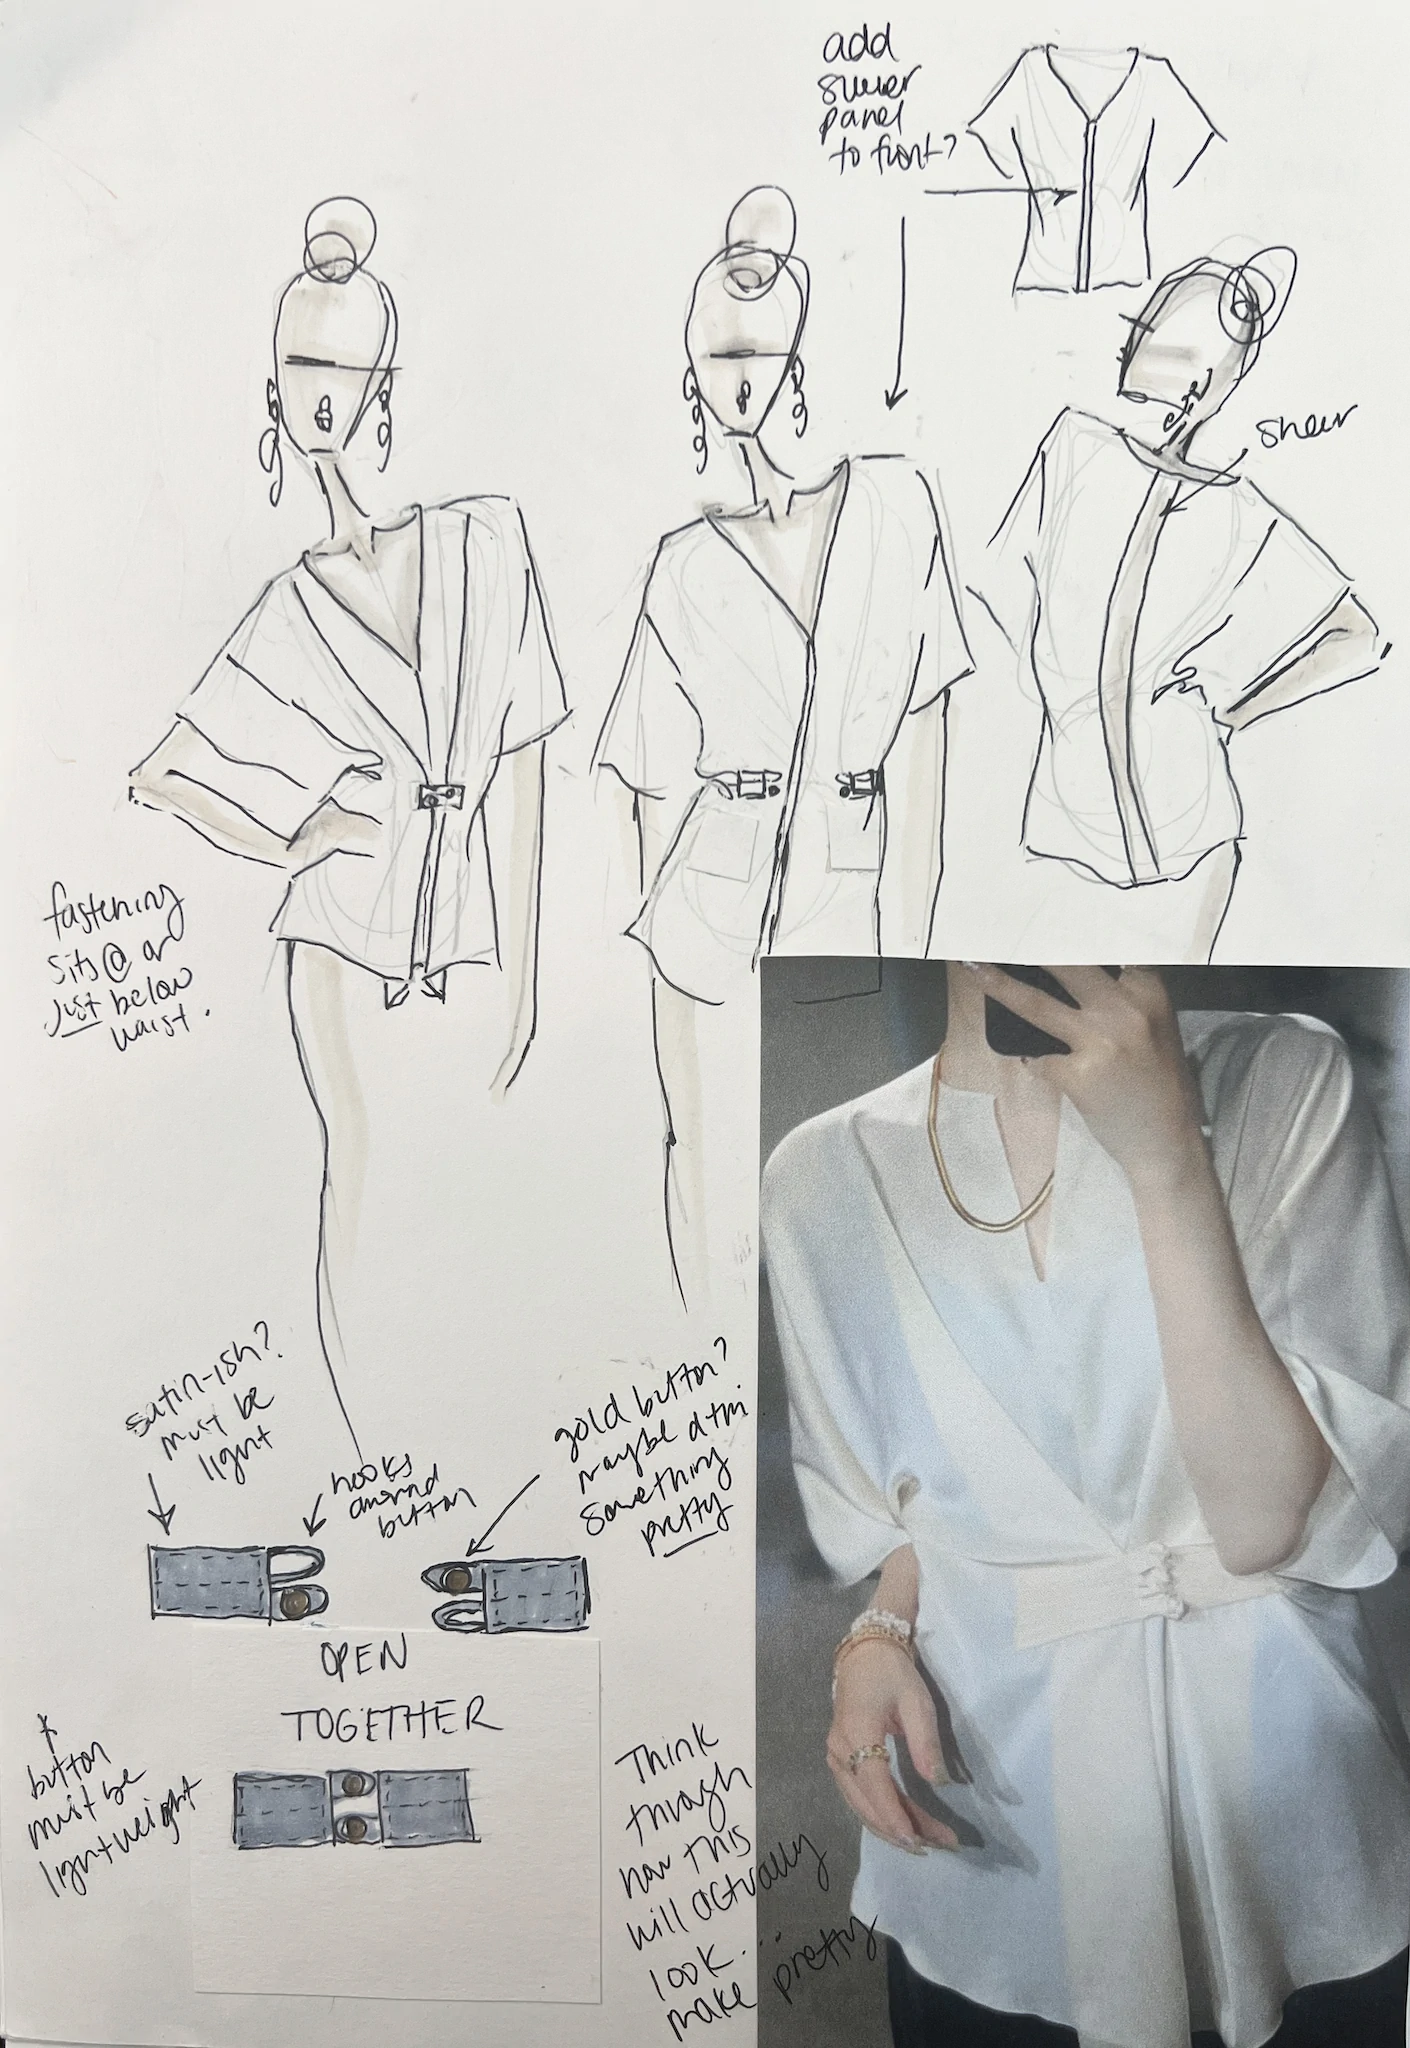 add
sheer
panel
to front?
sheer
fastening
sits @ or
just below
waist.
satin-ish?
must be
light
hooks
around
button
gold button?
maybe dtm
something
pretty
OPEN
TOGETHER
*
button
must be
lightweight
Think
through
how this
will actually
look...
make pretty